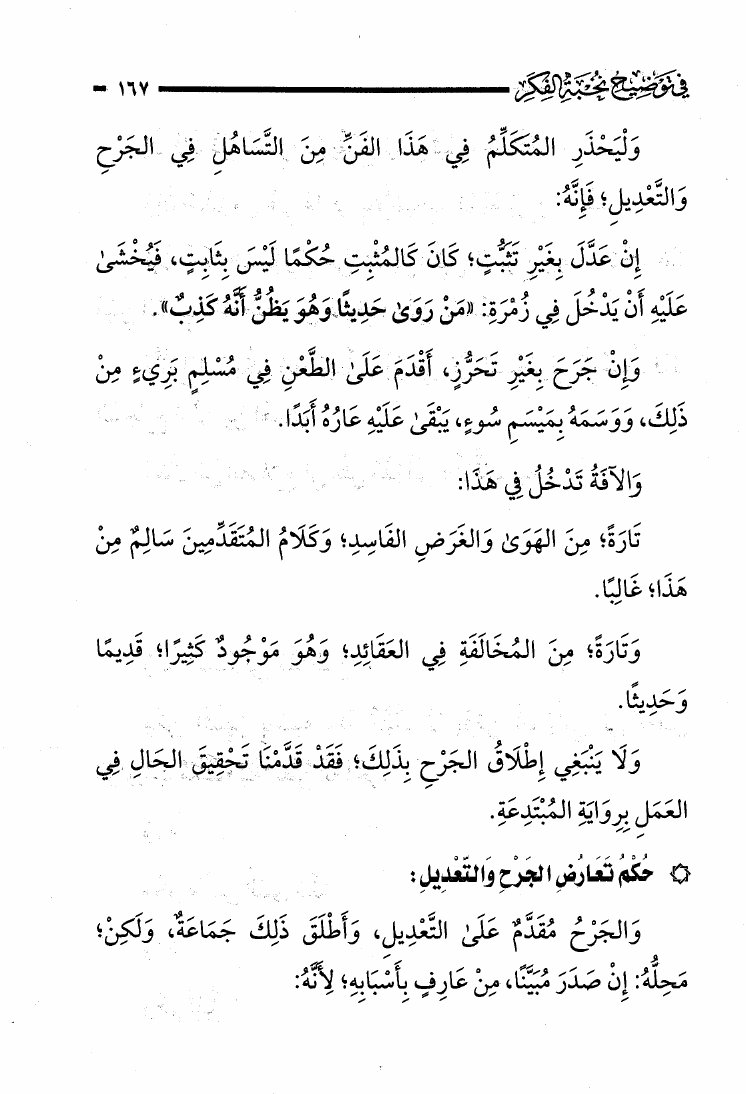 في توضيح نخبة الفكر ١٦٧
وَلْيَحْذَرِ المُتَكَلِّمُ فِي هَذَا الفَنِّ مِنَ التَّسَاهُلِ فِي الجَرْحِ
وَالتَّعْدِيلِ؛ فَإِنَّهُ:
إِنْ عَدَّلَ بِغَيْرِ تَثَبُّتٍ؛ كَانَ كَالمُثْبِتِ حُكْمًا لَيْسَ بِثَابِتٍ، فَيُخْشَىٰ
عَلَيْهِ أَنْ يَدْخُلَ فِي زُمْرَةِ: «مَنْ رَوَىٰ حَدِيثًا وَهُوَ يَظُنُّ أَنَّهُ كَذِبٌ».
وَإِنْ جَرَحَ بِغَيْرِ تَحَرُّزٍ، أَقْدَمَ عَلَىٰ الطَّعْنِ فِي مُسْلِمٍ بَرِيءٍ مِنْ
ذَلِكَ، وَوَسَمَهُ بِمَيْسَمِ سُوءٍ، يَبْقَىٰ عَلَيْهِ عَارُهُ أَبَدًا.
وَالآفَةُ تَدْخُلُ فِي هَذَا:
تَارَةً؛ مِنَ الهَوَىٰ وَالغَرَضِ الفَاسِدِ؛ وَكَلَامُ المُتَقَدِّمِينَ سَالِمٌ مِنْ
هَذَا؛ غَالِبًا.
وَتَارَةً؛ مِنَ المُخَالَفَةِ فِي العَقَائِدِ؛ وَهُوَ مَوْجُودٌ كَثِيرًا؛ قَدِيمًا
وَحَدِيثًا.
وَلَا يَنْبَغِي إِطْلَاقُ الجَرْحِ بِذَلِكَ؛ فَقَدْ قَدَّمْنَا تَحْقِيقَ الحَالِ فِي
العَمَلِ بِرِوَايَةِ المُبْتَدِعَةِ.
حُكْمُ تَعَارُضِ الجَرْحِ وَالتَّعْدِيلِ:
وَالجَرْحُ مُقَدَّمٌ عَلَىٰ التَّعْدِيلِ، وَأَطْلَقَ ذَلِكَ جَمَاعَةٌ، وَلَكِنْ؛
مَحِلُّهُ: إِنْ صَدَرَ مُبَيَّنًا، مِنْ عَارِفٍ بِأَسْبَابِهِ؛ لِأَنَّهُ: